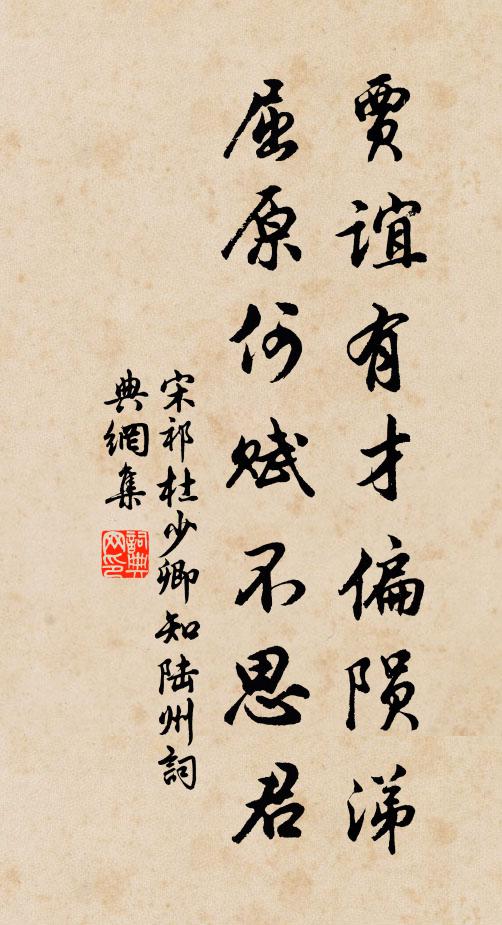 賈誼有才偏隕涕
屈原何賦不思君
宋祁杜少卿知陆州詞
典網集
詞典
网印